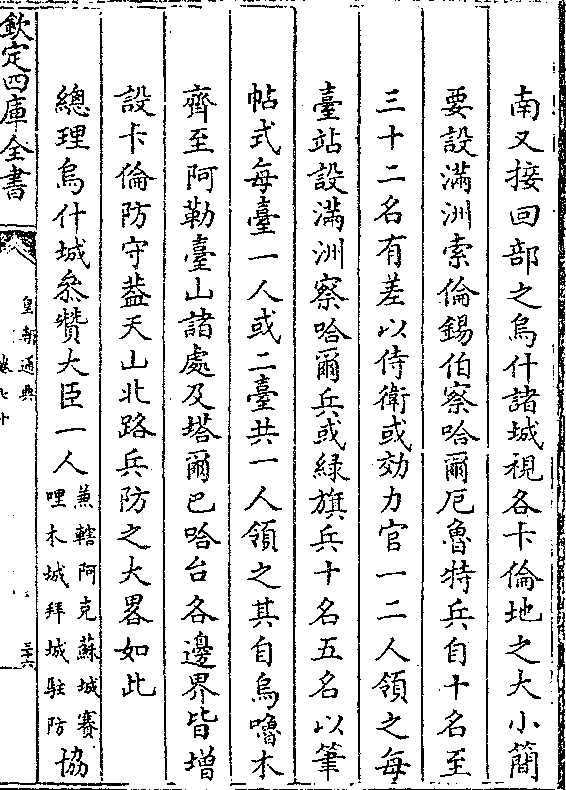 南又接回部之烏什諸城視各卡倫地之大小簡
要設滿洲索倫錫伯察哈爾厄魯特兵自十名至
三十二名有差以侍衛或効力官一二人領之每
臺站設滿洲察哈爾兵或緑旗兵十名五名以筆
帖式每臺一人或二臺共一人領之其自烏嚕木
齊至阿勒臺山諸處及塔爾巴哈台各邊界皆增
設卡倫防守葢天山北路兵防之大畧如此
總理烏什城叅贊大臣一人兼轄阿克蘇城賽哩木城拜城駐防協
欽定四庫全書
皇朝通典
卷九十
三六